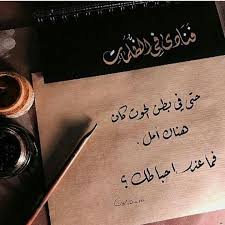 فنادى في الظلمات
حتى في بطن الحوت كان
هناك أمل .
فما عذر احباطك ؟